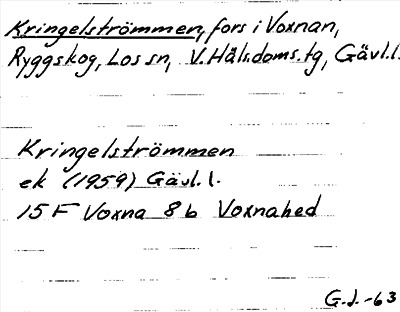 Kringelströmmen, fors i Voxnan,
Ryggskog, Los sn, V. Häls.doms.tg, Gävl.l.
Kringelströmmen
ek (1959) Gävl.l.
15 F Voxna 8 b Voxnahed
G.J.-63